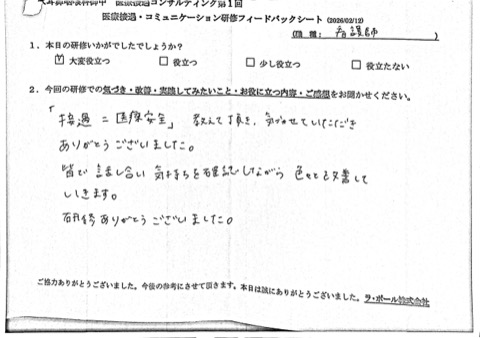 耳鼻咽喉科御中 医療接遇コンサルティング第1回
医療接遇・コミュニケーション研修フィードバックシート（2026/02/12）
（職種：看護師）
1．本日の研修いかがでしたでしょうか？
☑ 大変役立つ □ 役立つ □ 少し役立つ □ 役立たない
2．今回の研修での気づき・改善・実践してみたいこと・お役に立つ内容・ご感想をお聞かせください。
「接遇＝医療安全」教えて頂き、気づかせていただき
ありがとうございました。
皆で話し合い 気持ちを確認しながら 色々と改善して
いきます。
研修ありがとうございました。
ご協力ありがとうございました。今後の参考にさせて頂きます。本日は誠にありがとうございました。ラ・ポール株式会社